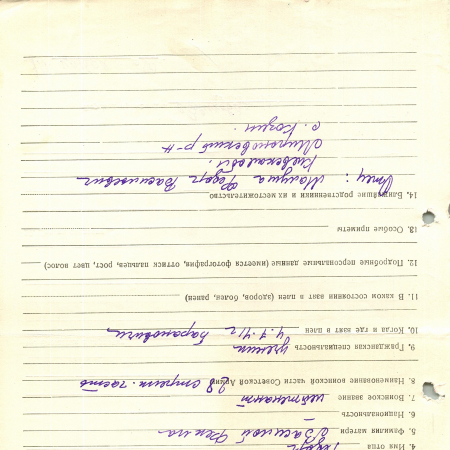 4. Имя отца Федор
5. Фамилия матери
6. Национальность —
7. Воинское звание лейтенант
8. Наименование воинской части Советской Армии 28 стрелк. часть
9. Гражданская специальность ученик
10. Когда и где взят в плен 4.7.41г Барановичи
11. В каком состоянии взят в плен (здоров, болен, ранен)
12. Подробные персональные данные (имеется фотография, оттиск пальцев, рост, цвет волос)
13. Особые приметы
14. Ближайшие родственники и их местожительство
Отец: Федор Васильевич
Киевская обл.
Мироновский р-н
с. Козин.